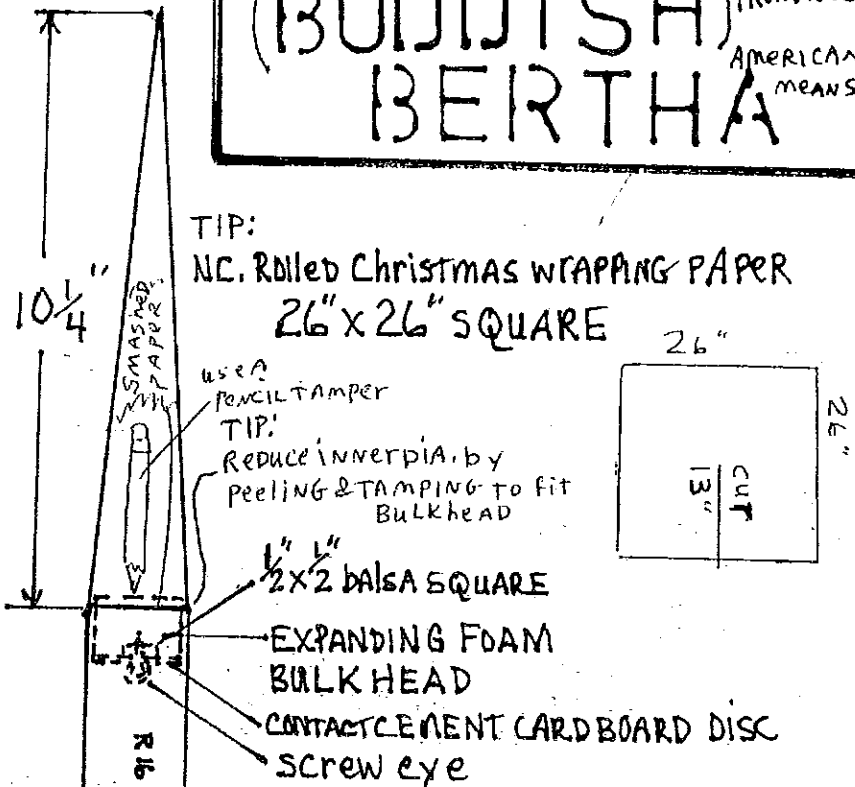 (BUDDISH)
AMERICAN
MEANS
BERTHA
TIP:
NC. Rolled Christmas WrAPPING PAPER
26" X 26" SQUARE
10 1/4"
SMASHED
PAPER
use A
PENCIL TAMPER
TIP:
Reduce iNNer DiA. by
PeeliNG & TAMPING TO fit
BULKheAD
26"
26"
CUT
13"
1/2" x 1/2" bAlSA SQUARE
EXPANDING FOAM
BULKHEAD
CONTACT CEMENT CARDBOARD DISC
SCrew eye
R16